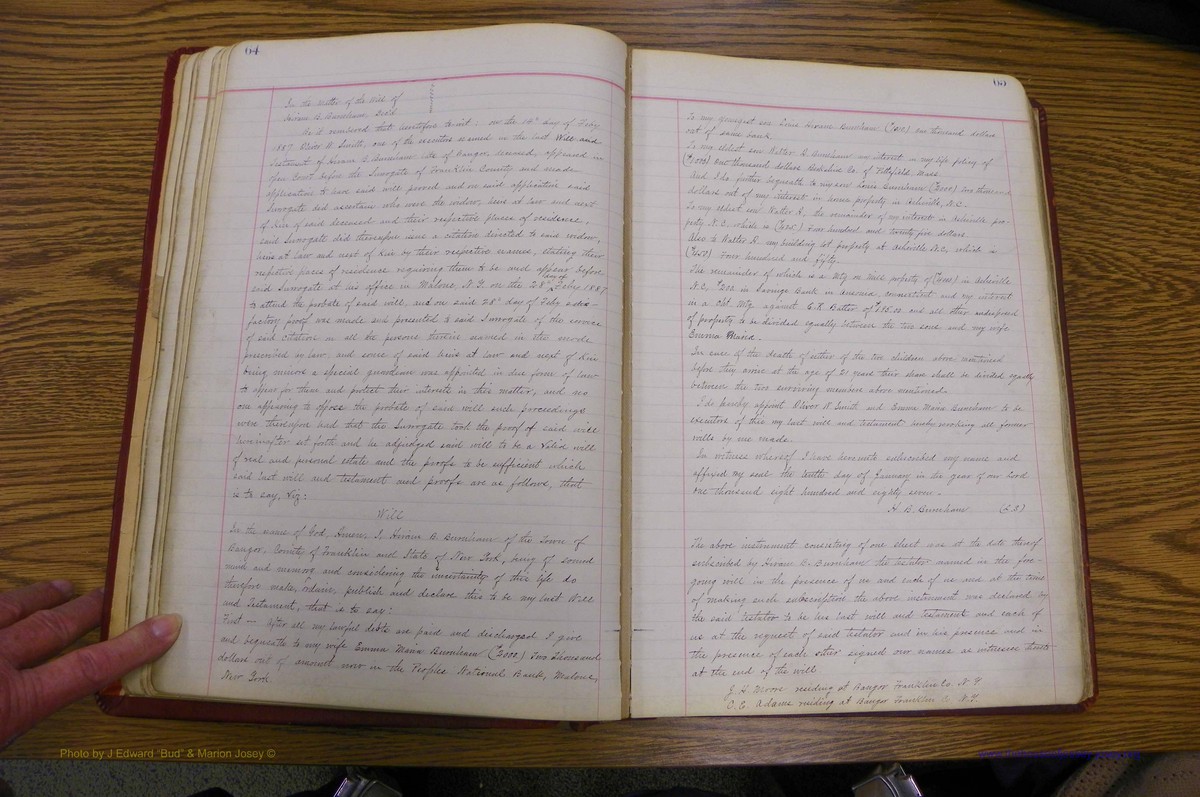 64
In the Matter of the Will of
Hiram B. Burnham, Dec'd
Be it remembered that heretofore to-wit: on the 14th day of Feby.
1887 Oliver W. Smith, one of the executors named in the last Will and
Testament of Hiram B. Burnham late of Bangor, deceased, appeared in
open Court before the Surrogate of Franklin County and made
application to have said will proved and on said application said
Surrogate did ascertain who were the widow, heirs at law and next
of Kin of said deceased and their respective places of residence,
said Surrogate did thereupon issue a citation directed to said widow,
heirs at law and next of Kin by their respective names, stating their
respective places of residence requiring them to be and appear before
said Surrogate at his office in Malone, N.Y. on the 28th day of Feby. 1887
to attend the probate of said will, and on said 28th day of Feby satis-
factory proof was made and presented to said Surrogate of the service
of said Citation on all the persons therein named in the mode
prescribed by law, and some of said heirs at law and next of Kin
being minors a special guardian was appointed in due form of law
to appear for them and protect their interests in this matter, and no
one appearing to oppose the probate of said will such proceedings
were thereupon had that the Surrogate took the proof of said will
hereinafter set forth and he adjudged said will to be a valid will
of real and personal estate and the proofs to be sufficient which
said last will and testament and proofs are as follows, that
is to say, Viz:
Will
In the name of God, Amen, I, Hiram B. Burnham of the Town of
Bangor, County of Franklin and State of New York, being of sound
mind and memory and considering the uncertainty of this life do
therefore make, ordain, publish and declare this to be my last Will
and Testament, that is to say:
First — After all my lawful debts are paid and discharged I give
and bequeath to my wife Emma Maria Burnham ($2000.) Two Thousand
dollars out of amount now in the Peoples National Bank, Malone,
New York
65
To my youngest son Louis Hiram Burnham ($1000) one thousand dollars
out of same bank
To my eldest son Walter R. Burnham an interest in my life policy of
($1000) one thousand dollars Berkshire Co. of Pittsfield, Mass.
And I do further bequeath to my son Louis Burnham ($2000) two thousand
dollars out of my interest in house property in Asheville, N.C.
To my eldest son Walter R., the remainder of my interest in Asheville pro-
perty N.C. which is ($425.) Four hundred and twenty five dollars
Also to Walter R. my building lot property at Asheville N.C. which is
($450) Four hundred and fifty.
The remainder of which is a Mtg on Mills property of in Asheville
N.C., $200. in Savings Bank in Ansonia, Connecticut and my interest
in a Chl. Mtg. against E.R. of $195.00 and all other undisposed
of property to be divided equally between the two sons and my wife
Emma Maria.
In case of the death of either of the two children above mentioned
before they arrive at the age of 21 years their share shall be divided equally
between the two surviving members above mentioned.
I do hereby appoint Oliver W. Smith and Emma Maria Burnham to be
executors of this my last will and testament hereby revoking all former
wills by me made.
In witness whereof I have hereunto subscribed my name and
affixed my seal the tenth day of January in the year of our Lord
One thousand eight hundred and eighty seven.
H. B. Burnham (L.S)
The above instrument consisting of one sheet was at the date thereof
subscribed by Hiram B. Burnham the testator named in the fore-
going will in the presence of us and each of us and at the time
of making such subscription the above instrument was declared by
the said testator to be his last will and testament and each of
us at the request of said testator and in his presence and in
the presence of each other signed our names as witnesses thereto
at the end of the will
J. H. Moore residing at Bangor Franklin Co. N.Y.
C. E. Adams residing at Bangor Franklin Co N.Y.
Photo by J Edward "Bud" & Marion Josey ©